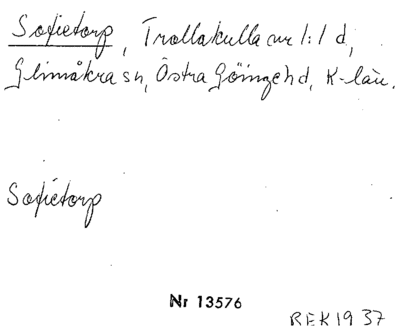 Sofietorp, Trollakulla nr 1:1 d,
Glimåkra sn, Östra Göinge hd, K-län.
Sofietorp
Nr 13576
REK 1937